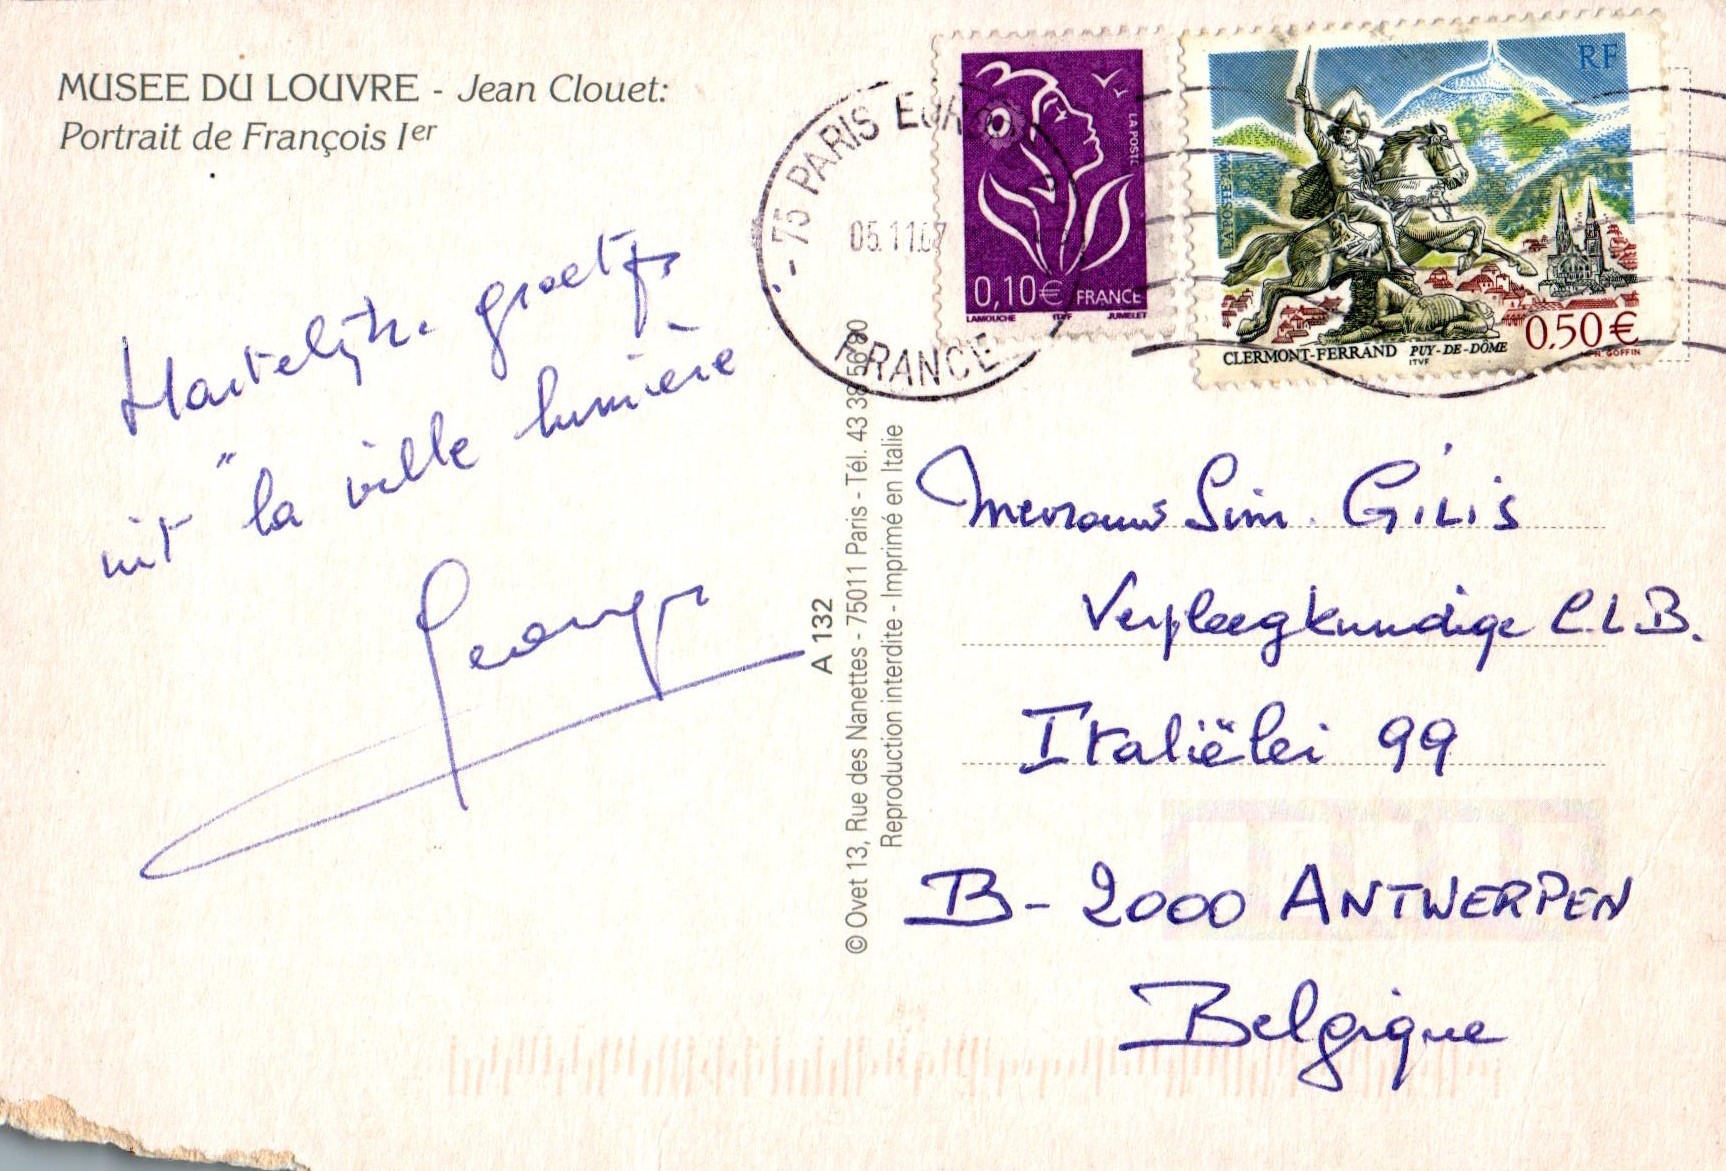 MUSEE DU LOUVRE - Jean Clouet:
Portrait de François Ier
Hartelijke groetjes
uit "la ville lumière
Georges
75 PARIS
05.11.07
FRANCE
LA POSTE
0,10€ FRANCE
LAMOUCHE ITVF JUMELET
RF
LA POSTE
0,50€
CLERMONT-FERRAND PUY-DE-DÔME
ITVF
GOFFIN
A 132
© Ovet 13, Rue des Nanettes - 75011 Paris - Tél. 43 38 56 80
Reproduction interdite - Imprimé en Italie
Mevrouw Sim. GILIS
Verpleegkundige C.L.B.
Italiëlei 99
B- 2000 ANTWERPEN
Belgique